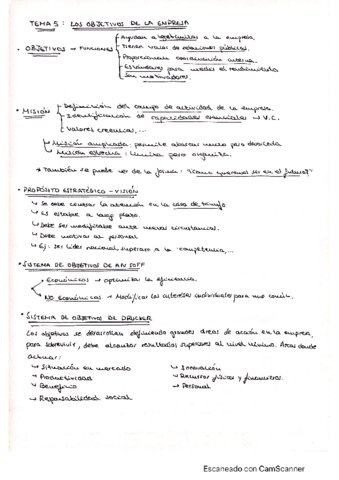 TEMA 5: LOS OBJETIVOS DE LA EMPRESA
Ayudan a legitimarlos a la empresa.
Tienen valor de relaciones públicas.
• OBJETIVOS → FUNCIONES
Proporcionan coordinación interna.
Estándares para medir el rendimiento
Son motivadores.
• MISIÓN
Definición del campo de actividad de la empresa.
Identificación de capacidades esenciales → V.C.
Valores, creencias,...
Misión ampliada: permite abarcar mucho pero
Misión estrecha: limita pero organiza.
* También se puede ver de la forma: "Como queremos ser en el futuro?"
• PROPÓSITO ESTRATÉGICO - VISIÓN
↳ Se debe centrar la atención en la
↳ Es estable a largo plazo.
↳ Debe ser modificable ante nuevas circunstancias.
↳ Debe motivar al personal
↳ Ej: ser líder nacional, superar a la competencia,...
• SISTEMA DE OBJETIVOS DE ANSOFF
Económicos → optimizar la eficiencia.
No económicos → Modifican los intereses individuales para uno común.
• SISTEMA DE OBJETIVOS DE DRUCKER
Los objetivos se desarrollan definiendo grandes áreas de acción en la empresa,
para sobrevivir, debe alcanzar resultados superiores al nivel mínimo. Áreas donde
actuar:
↳ Situación en mercado
↳ Innovación
↳ Productividad
↳ Recursos físicos y financieros.
↳ Beneficio
↳ Personal
↳ Responsabilidad social
Escaneado con CamScanner